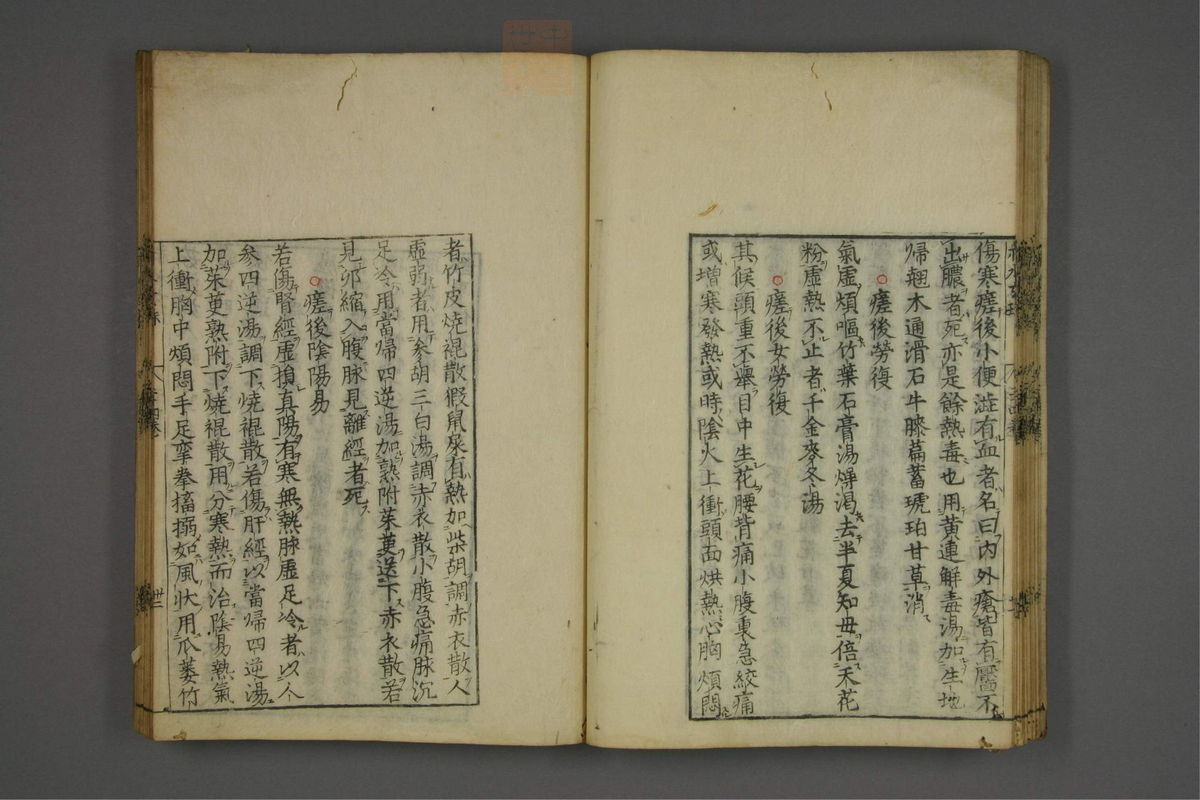 傷寒瘥後小便澁有血者名曰内外瘡皆有靨不
出膿者死亦是餘熱毒也用黄連解毒湯加生地
帰翹木通滑石牛膝萹蓄琥珀甘草消
瘥後勞復
氣虚煩嘔竹葉石膏湯㷱渇去半夏知母倍天花
粉虚熱不止者千金麥冬湯
瘥後女勞復
其候頭重不舉目中生花腰背痛小腹裏急絞痛
或增寒發熱或時陰火上衝頭面烘熱心胸煩悶
者竹皮焼裩散假鼠屎有熱加柴胡調赤衣散人
虚弱者用參胡三白湯調赤衣散小腹急痛脉沉
足冷用當帰四逆湯加熟附茱萸送下赤衣散若
見卵縮入腹脉見離經者死
瘥後陰陽易
若傷腎經虚損真陽有寒無熱脉虚足冷者以人
參四逆湯調下焼裩散若傷肝經以當帰四逆湯
加茱萸熟附下焼裩散用分寒熱而治陰易熱氣
上衝胸中煩悶手足攣拳搐搦如風状用瓜蔞竹